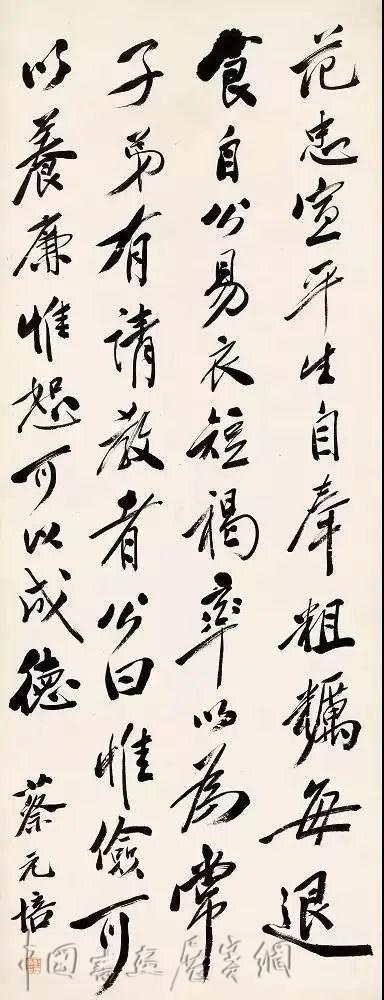 范忠宣平生自奉粗糲每退
食自公易衣短褐率以為常
子弟有請教者公曰惟儉可
以養廉惟恕可以成德
蔡元培